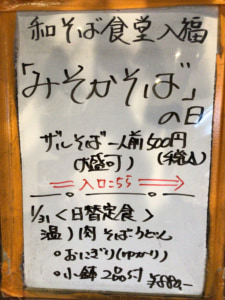 和そば食堂 入福
「みそかそば」
の日
ザルそば一人前500円
(大盛可) (税込)
入口こちら
1/31 <日替定食>
温)肉そばうどん
。おにぎり(ゆかり)
。小鉢2品付 ¥880-